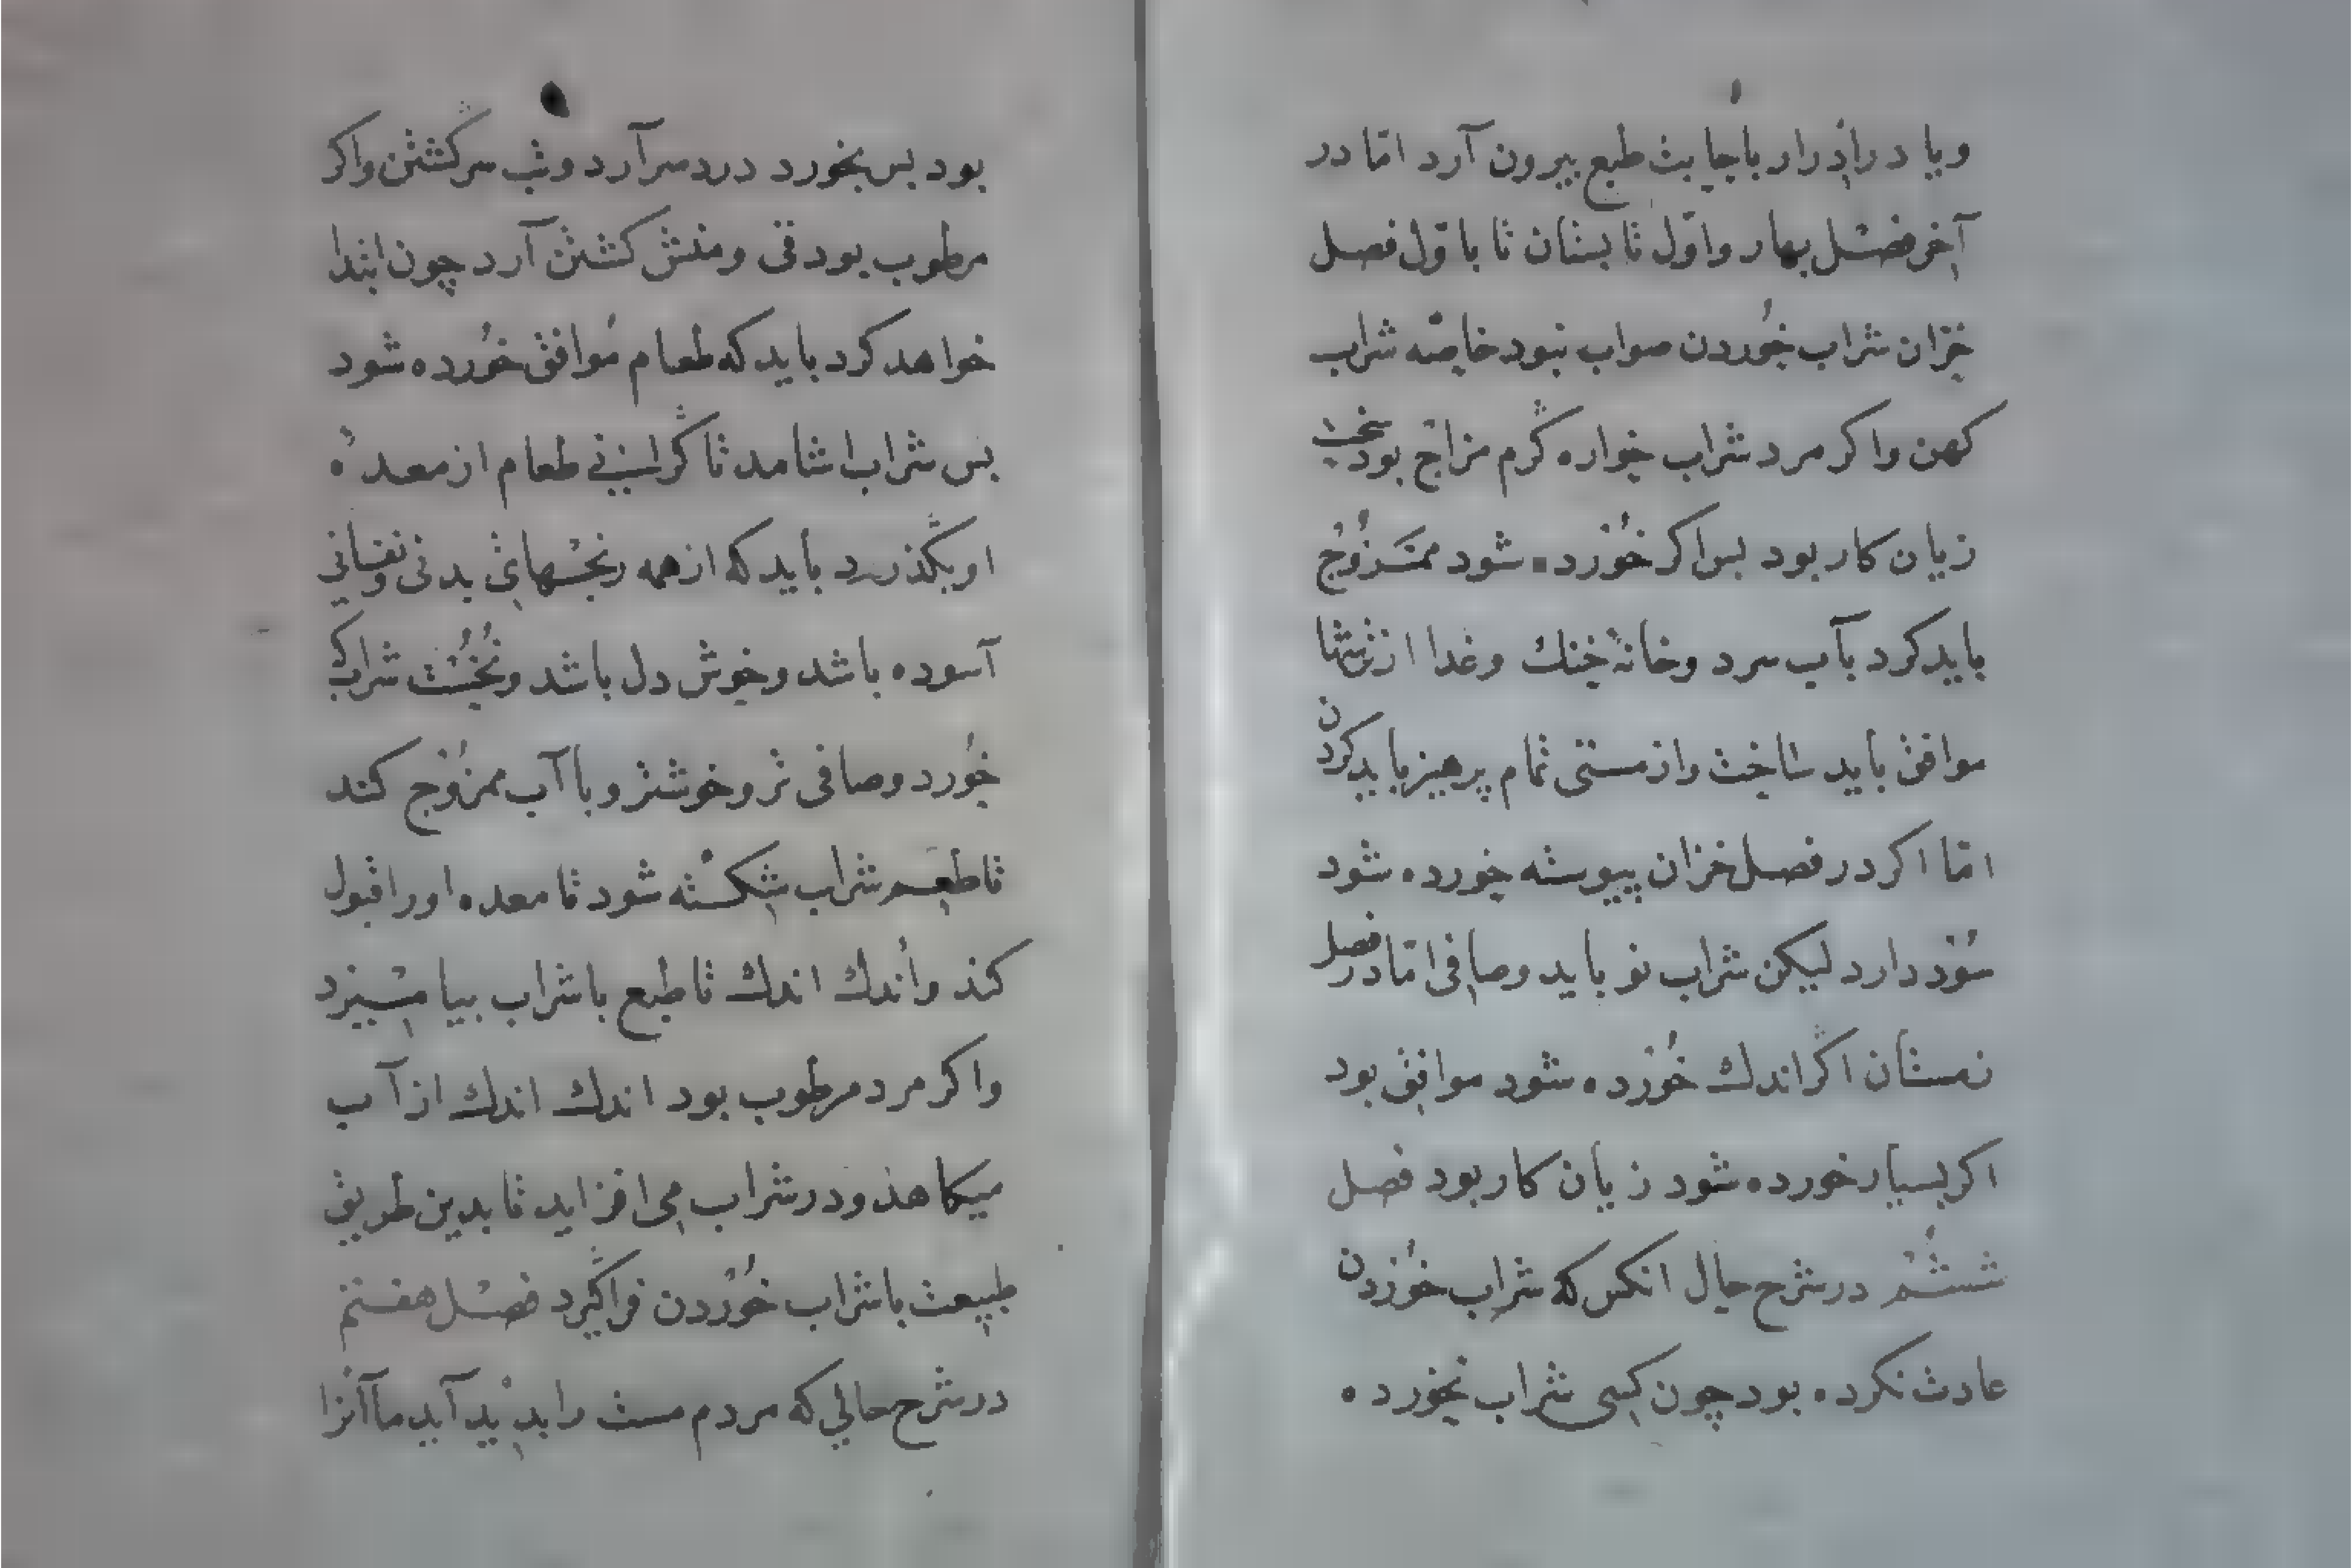 ویا در ادرار باجابت طبع بیرون آرد امّا در
آخر فصل بهار واوّل تابستان تا باوّل فصل
خزان شراب خوردن صواب نبود خاصّه شراب
کهن واکر مرد شراب خواره گرم مزاج بود سخت
زیان کار بود بس اکر خُورده شود ممزوُج
باید کرد بآب سرد وخانهٔ خنك وغدا از
موافق باید ساخت واز مستی تمام پرهیز باید کردن
امّا اکر در فصل خزان پیوسته خورده شود
سُود دارد لیکن شراب نو باید وصافی امّا در فصل
زمستان اگر اندك خُورده شود موافق بود
اکر بسیار خورده شود زیان کار بود فصل
ششُم در شرح حال انکس که شراب خُوردن
عادت نکرده بود چون کسی شراب نخورده
بود بس بخورد درد سر آرد وتب سرگشتن واکر
مرطوب بود قی ومنش کشتن آرد چون ابتدا
خواهد کرد باید که طعام مُوافق خُورده شود
بس شراب اشامد تا گرانی طعام از معدهٔ
او بگذرد باید که از همه رنجهای بدنی ونفسانی
آسوده باشد وخوش دل باشد ونُخُست شراب که
خُورد وصافی تر وخوشتر وبا آب ممزوُج کند
تا طعم شراب شکسته شود تا معده اورا قبول
کند واندك اندك تا طبع باشراب بیامیزد
واکر مرد مرطوب بود اندك اندك از آب
میکاهد ودر شراب می افزاید تا بدین طریق
طبیعت باشراب خُوردن فراگیرد فصل هفتم
در شرح حالی که مردم مست را بدید آید ما آنرا